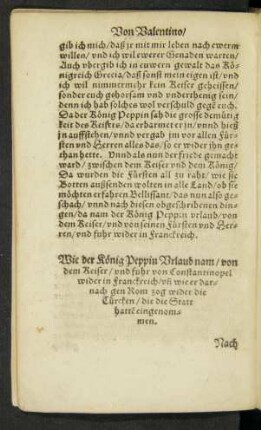 Von Valentino/
gib ich mich/daß jr mit mir leben nach ewerm
willen/ vnd ich wil ewerer Genaden warten/
Auch vbergib ich in ewern gewalt das Kö-
nigreich Grecia/daß sonst mein eigen ist/vnd
ich wil nimmermehr kein Keiser geheissen/
sonder euch gehorsam vnd vnderthenig sein/
denn ich hab solches wol verschuld gegē euch.
Da der König Peppin sah die grosse demütig
keit des Keisers/da erbarmet er jn/vnnd hieß
jn auffstehen/vnnd vergab jm vor allen Für-
sten vnd Herren alles das/so er wider jhn ge-
than hette. Vnnd als nun der friede gemacht
ward/zwischen dem Keiser vnd dem König/
Da wurden die Fürsten all zu raht/ wie sie
Botten außsenden wolten in alle Land/ob sie
möchten erfahren Bellissant/das nun also ge-
schach/vnnd nach diesen obgeschribenen din-
gen/da nam der König Peppin vrlaub/von
dem Keiser/vnd von seinen Fürsten vnd Her-
ren/vnd fuhr wider in Franckreich.
Wie der König Peppin Vrlaub nam/von
dem Keiser/vnd fuhr von Constantinopel
wider in Franckreich/vñ wie er dar-
nach gen Rom zog wider die
Türcken/die die Statt
hattē eingenom-
men.
Nach